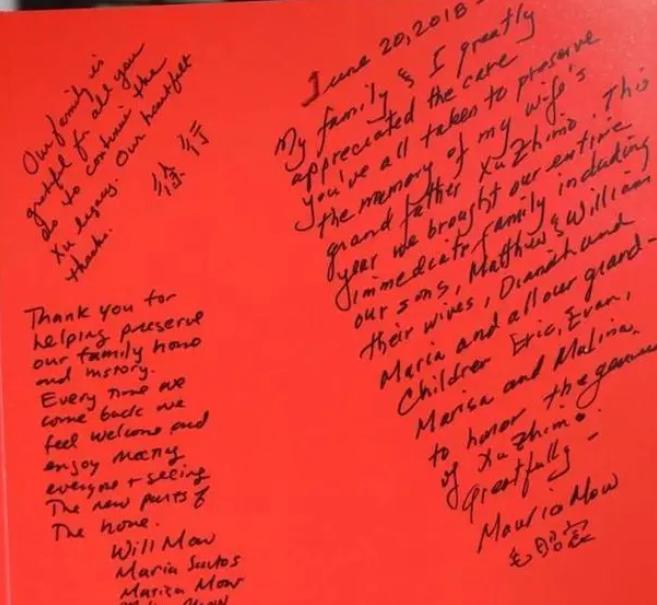 Our family is
grateful for all you
do to continue the
Xu legacy. Our heartfelt
thanks.
徐 行
Thank you for
helping preserve
our family home
and history.
Every time we
come back we
feel welcome and
enjoy meeting
everyone + seeing
The new parts of
The home.
Will Mow
Maria Santos
Marisa Mow
June 20, 2018 -
My family & I greatly
appreciated the care
you've all taken to preserve
the memory of my wife's
grand father Xu Zhimo. This
year we brought our entire
immediate family including
our sons, Matthew & William
their wives, Dianah and
Maria and all our grand-
Children Eric, Evan,
Marisa and Malina.
to honor the genius
of Xu Zhimo.
Gratefully -
Mauria Mow